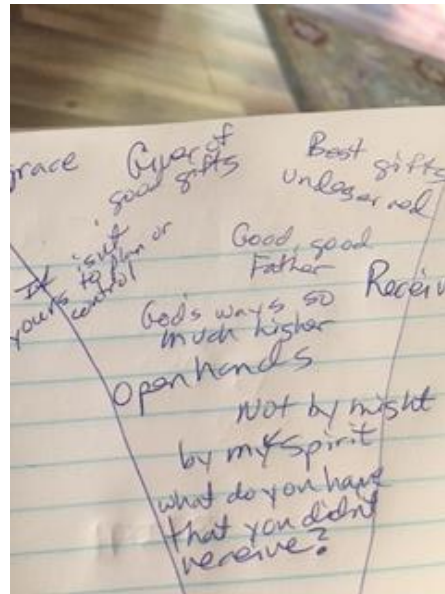 grace
Giver of
good gifts
Best gifts
undeserved
It isn't
yours to plan or
control
Good, good
Father
Receiv
God's ways so
much higher
Open hands
Not by might
by my spirit
what do you have
that you didnt
receive?